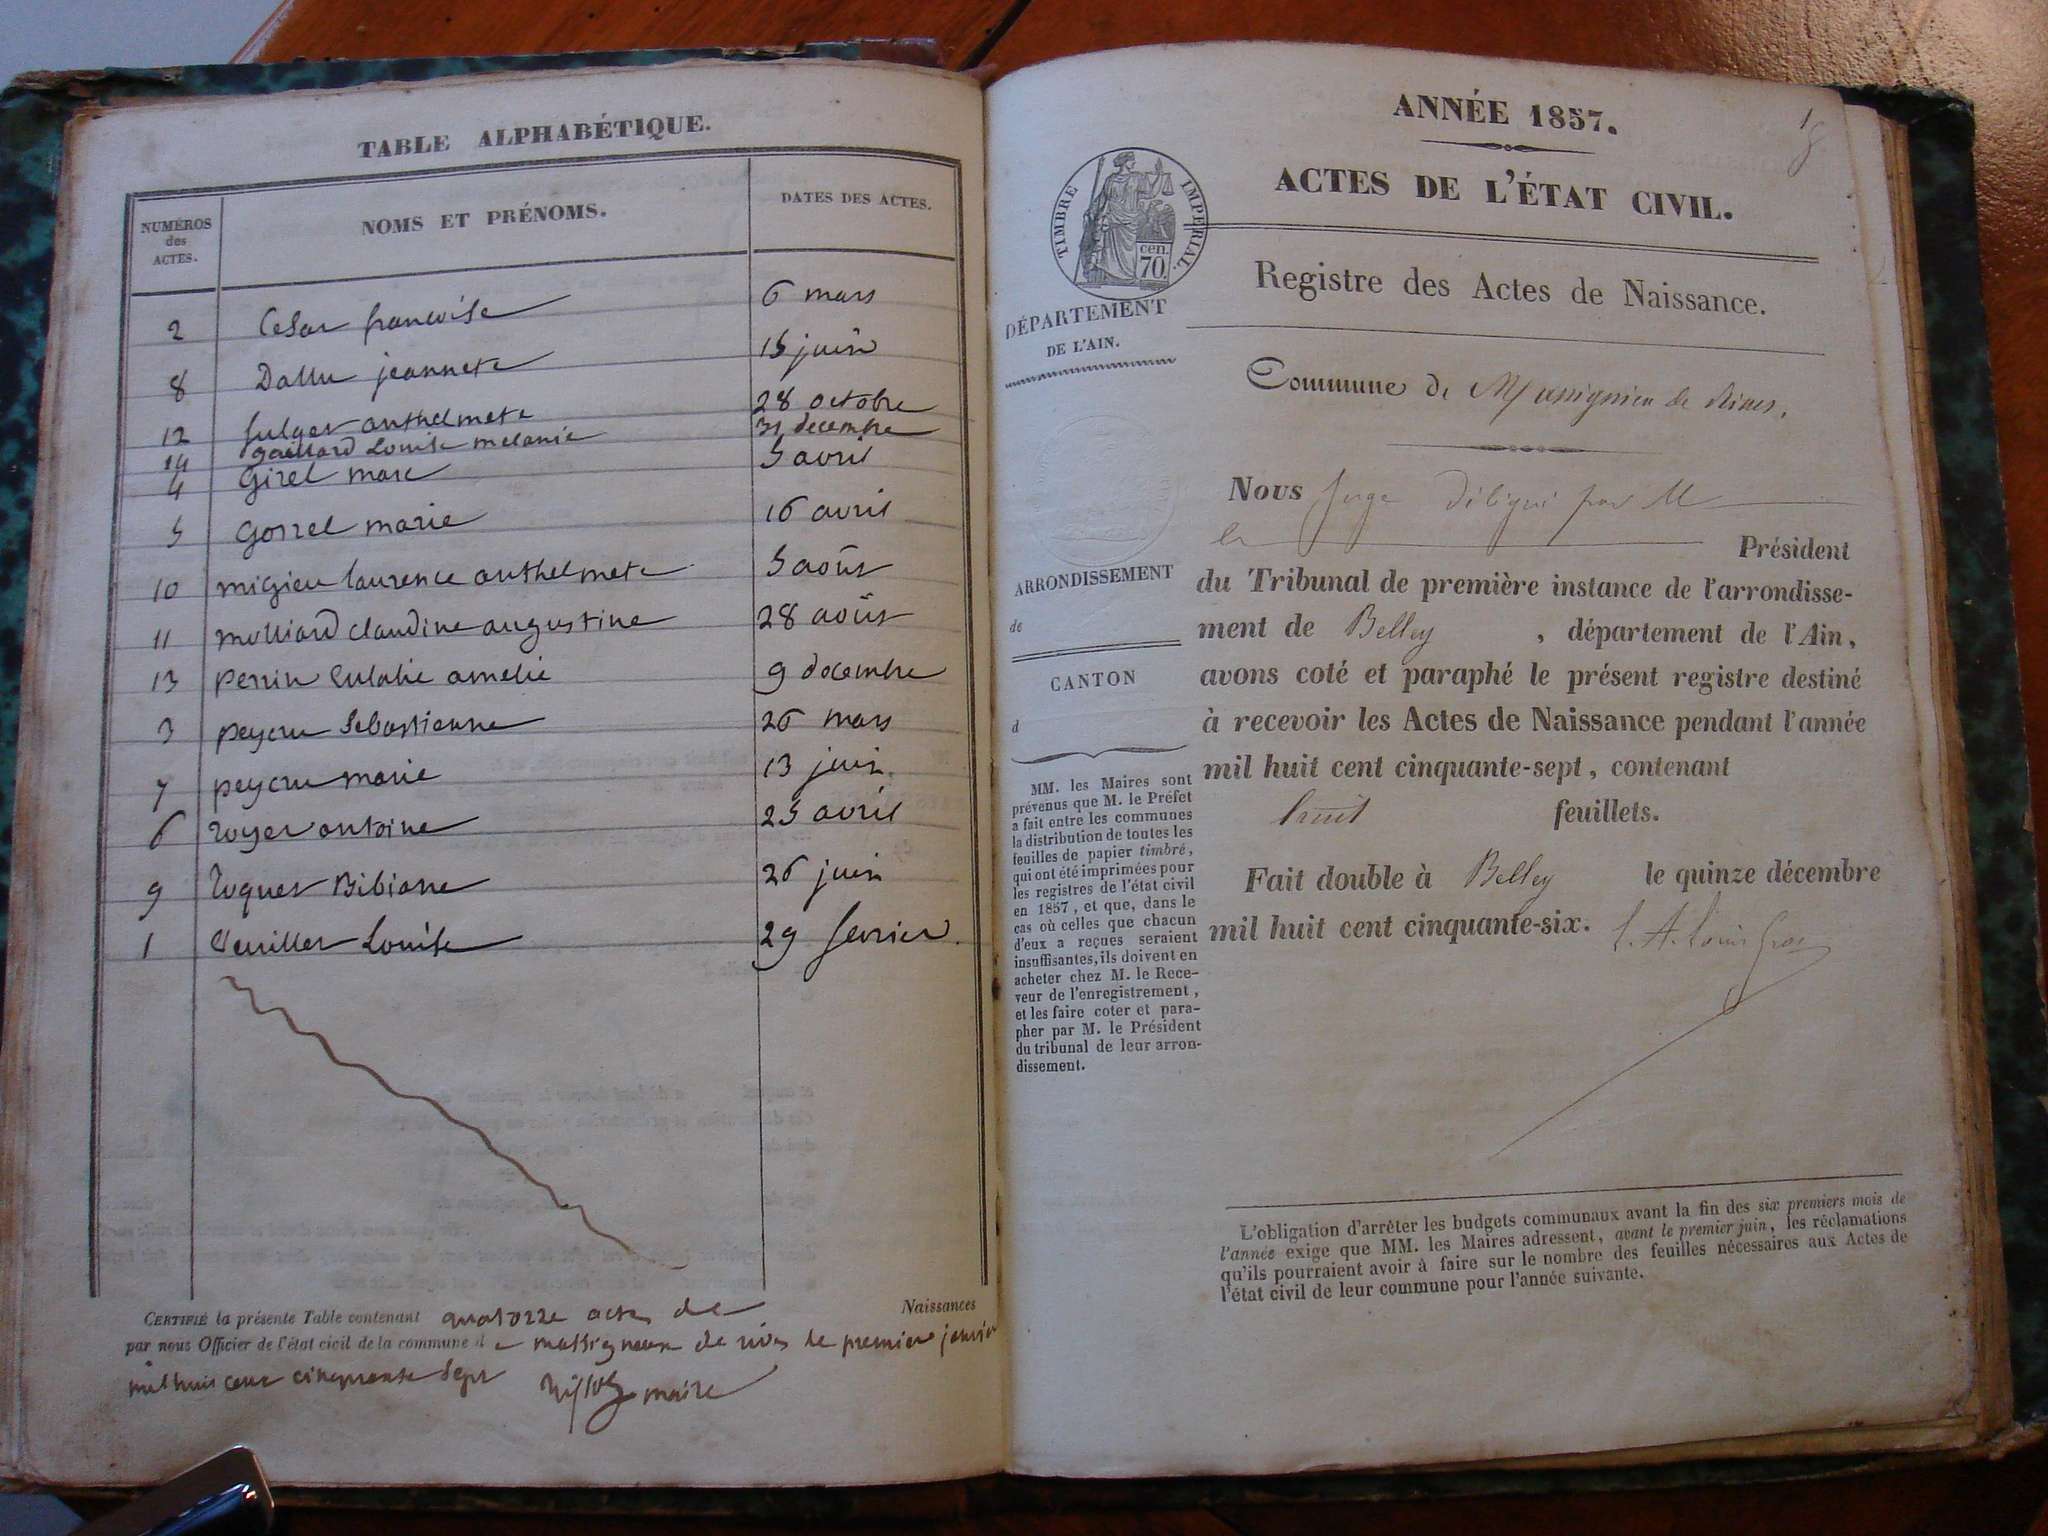 TABLE ALPHABÉTIQUE.
NUMÉROS des ACTES. NOMS ET PRÉNOMS. DATES DES ACTES.
2 Cesar francoise 6 mars
8 Dallu jeannete 15 juin
12 fulger anthelmete 28 octobre
14 gaillard Louise melanie 31 decembre
4 Girel marc 5 avril
5 Gorrel marie 16 avril
10 migieu laurence anthelmete 5 août
11 molliard claudine augustine 28 août
13 perrin Eulalie amelie 9 decembre
3 peycru Sebastienne 26 mars
7 peycru marie 13 juin
6 royer antoine 25 avril
9 roques Bibiane 26 juin
1 Veuillet Louise 29 fevrier
CERTIFIÉ la présente Table contenant quatorze actes de Naissances
par nous Officier de l'état civil de la commune de massigneux de rives le premier janvier
mil huit cent cinquante sept maire
1
ANNÉE 1857.
ACTES DE L'ÉTAT CIVIL.
TIMBRE IMPÉRIAL.
cen.
70.
Registre des Actes de Naissance.
DÉPARTEMENT
DE L'AIN.
Commune de Massignieu de Rives.
ARRONDISSEMENT
de
CANTON
d
MM. les Maires sont
prévenus que M. le Préfet
a fait entre les communes
la distribution de toutes les
feuilles de papier timbré,
qui ont été imprimées pour
les registres de l'état civil
en 1857, et que, dans le
cas où celles que chacun
d'eux a reçues seraient
insuffisantes, ils doivent en
acheter chez M. le Rece-
veur de l'enregistrement,
et les faire coter et para-
pher par M. le Président
du tribunal de leur arron-
dissement.
Nous Juge délégué par M
le Président
du Tribunal de première instance de l'arrondisse-
ment de Belley, département de l'Ain,
avons coté et paraphé le présent registre destiné
à recevoir les Actes de Naissance pendant l'année
mil huit cent cinquante-sept, contenant
huit feuillets.
Fait double à Belley le quinze décembre
mil huit cent cinquante-six.
L'obligation d'arrêter les budgets communaux avant la fin des six premiers mois de
l'année exige que MM. les Maires adressent, avant le premier juin, les réclamations
qu'ils pourraient avoir à faire sur le nombre des feuilles nécessaires aux Actes de
l'état civil de leur commune pour l'année suivante.